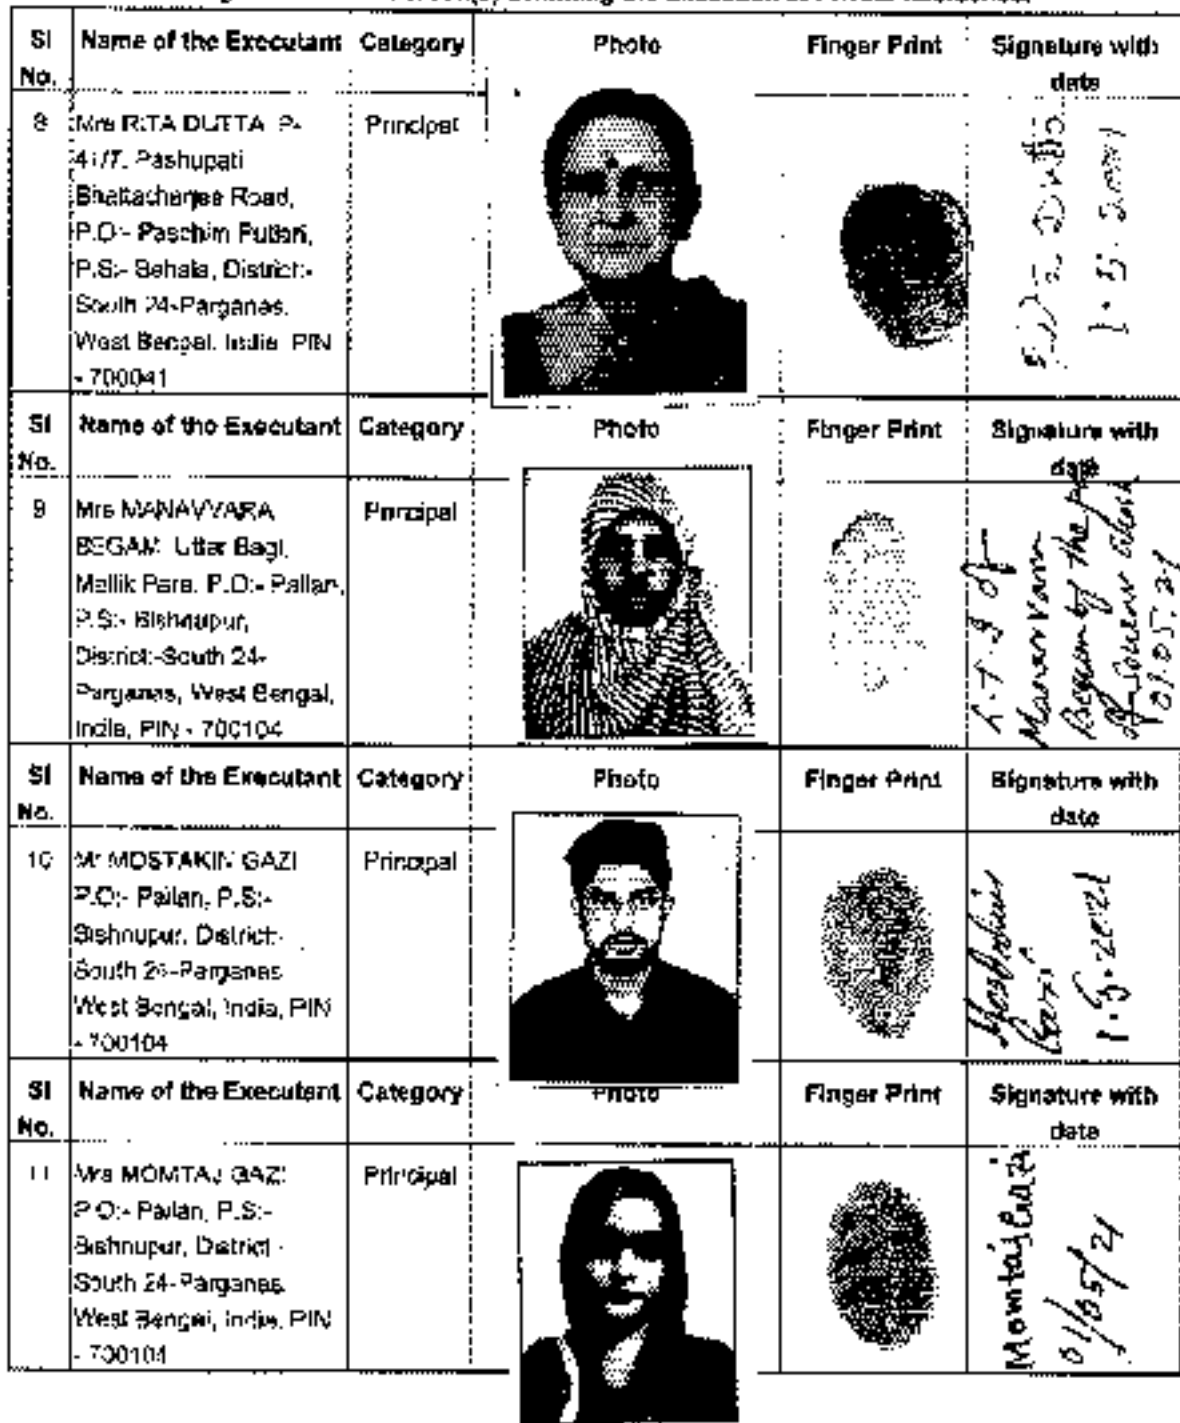 Person(s) admitting the Execution at Private Residence.
Sl No. Name of the Executant Category Photo Finger Print Signature with date
8 Mrs RITA DUTTA P- Principal
41/7, Pashupati
Bhattacharjee Road,
P.O:- Paschim Putiari,
P.S:- Behala, District:-
South 24-Parganas,
West Bengal, India, PIN
- 700041
Rita Dutta
1.5.2021
Sl No. Name of the Executant Category Photo Finger Print Signature with date
9 Mrs MANAVVARA Principal
BEGAM Uttar Bagi,
Mallik Para, P.O:- Pailan,
P.S:- Bishnupur,
District:-South 24-
Parganas, West Bengal,
India, PIN - 700104
L.T.I of
Manavvara
Begum by the
of
01.05.21
Sl No. Name of the Executant Category Photo Finger Print Signature with date
10 Mr MOSTAKIN GAZI Principal
P.O:- Pailan, P.S:-
Bishnupur, District:-
South 24-Parganas
West Bengal, India, PIN
- 700104
Mostakin
Gazi
1.5.2021
Sl No. Name of the Executant Category Photo Finger Print Signature with date
11 Mrs MOMTAJ GAZI Principal
P.O:- Pailan, P.S:-
Bishnupur, District:-
South 24-Parganas,
West Bengal, India, PIN
- 700104
Momtaj Gazi
01/05/21